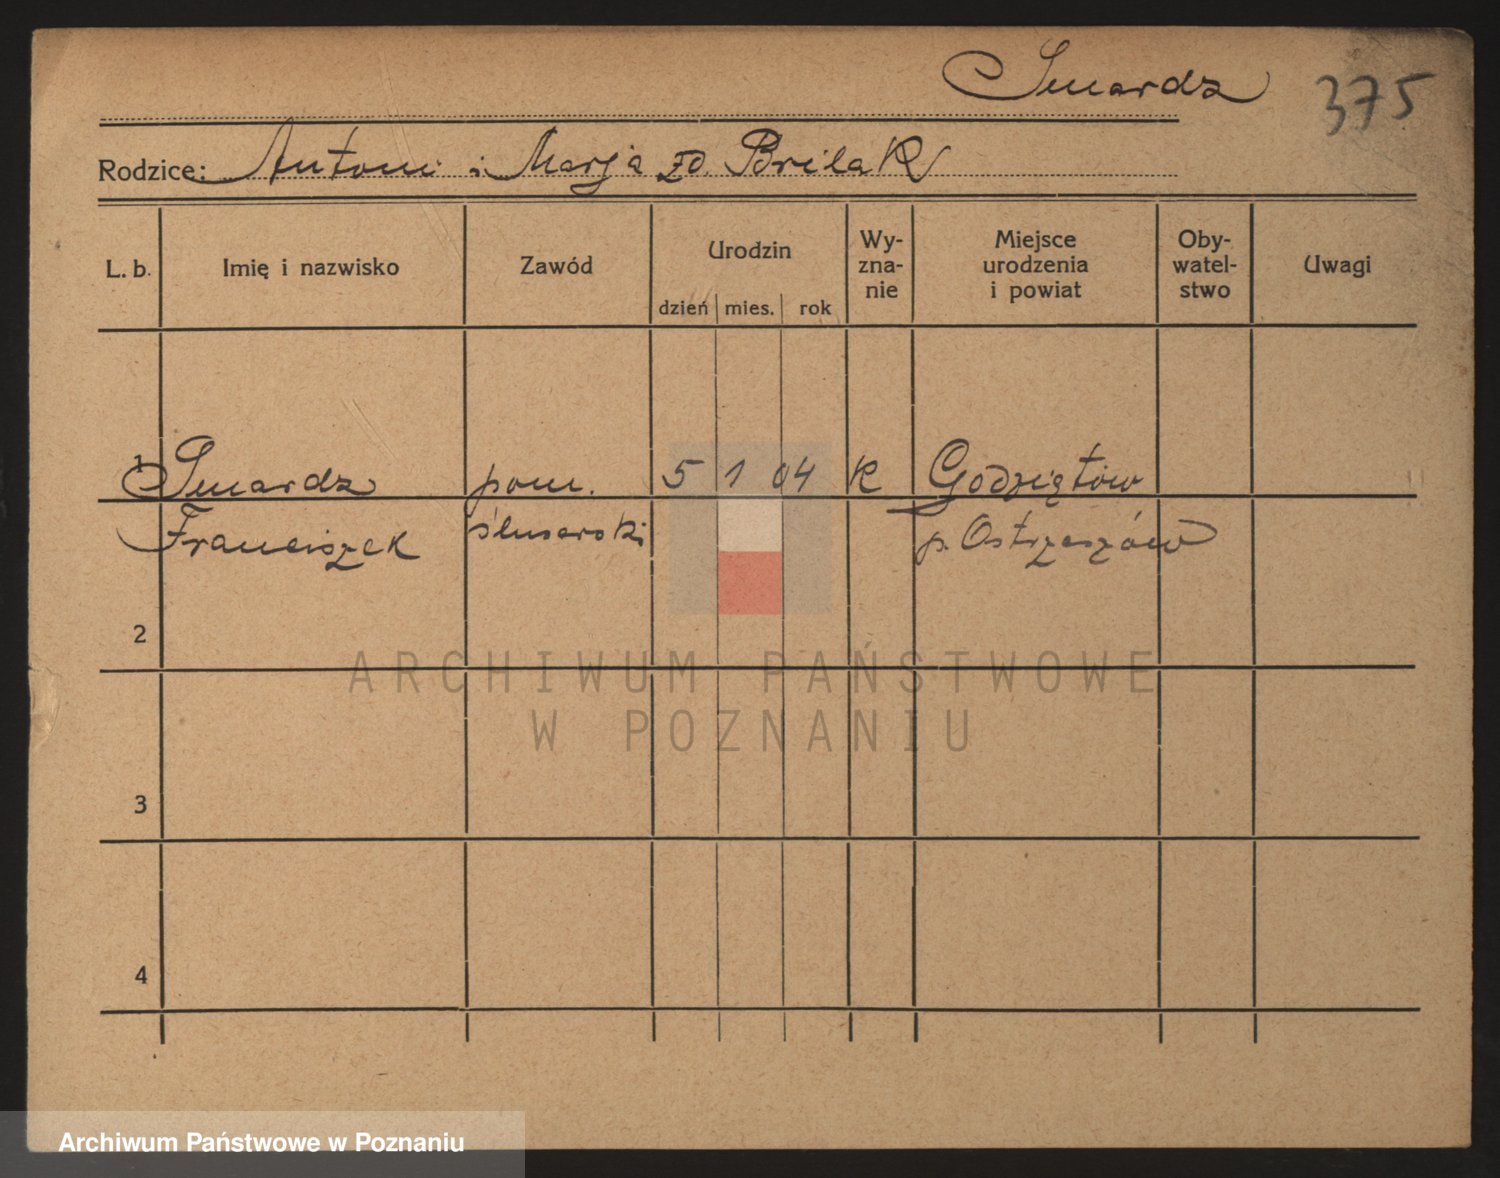 Smardz
375
Rodzice: Antoni i Marja zd. Brilak
L. b. Imię i nazwisko Zawód Urodzin dzień mies. rok Wy-zna-nie Miejsce urodzenia i powiat Oby-watel-stwo Uwagi
1 Smardz pom. 5 1 04 K Godziętów
Franciszek ślusarski p. Ostrzeszów
2
3
4
ARCHIWUM PAŃSTWOWE
W POZNANIU
Archiwum Państwowe w Poznaniu